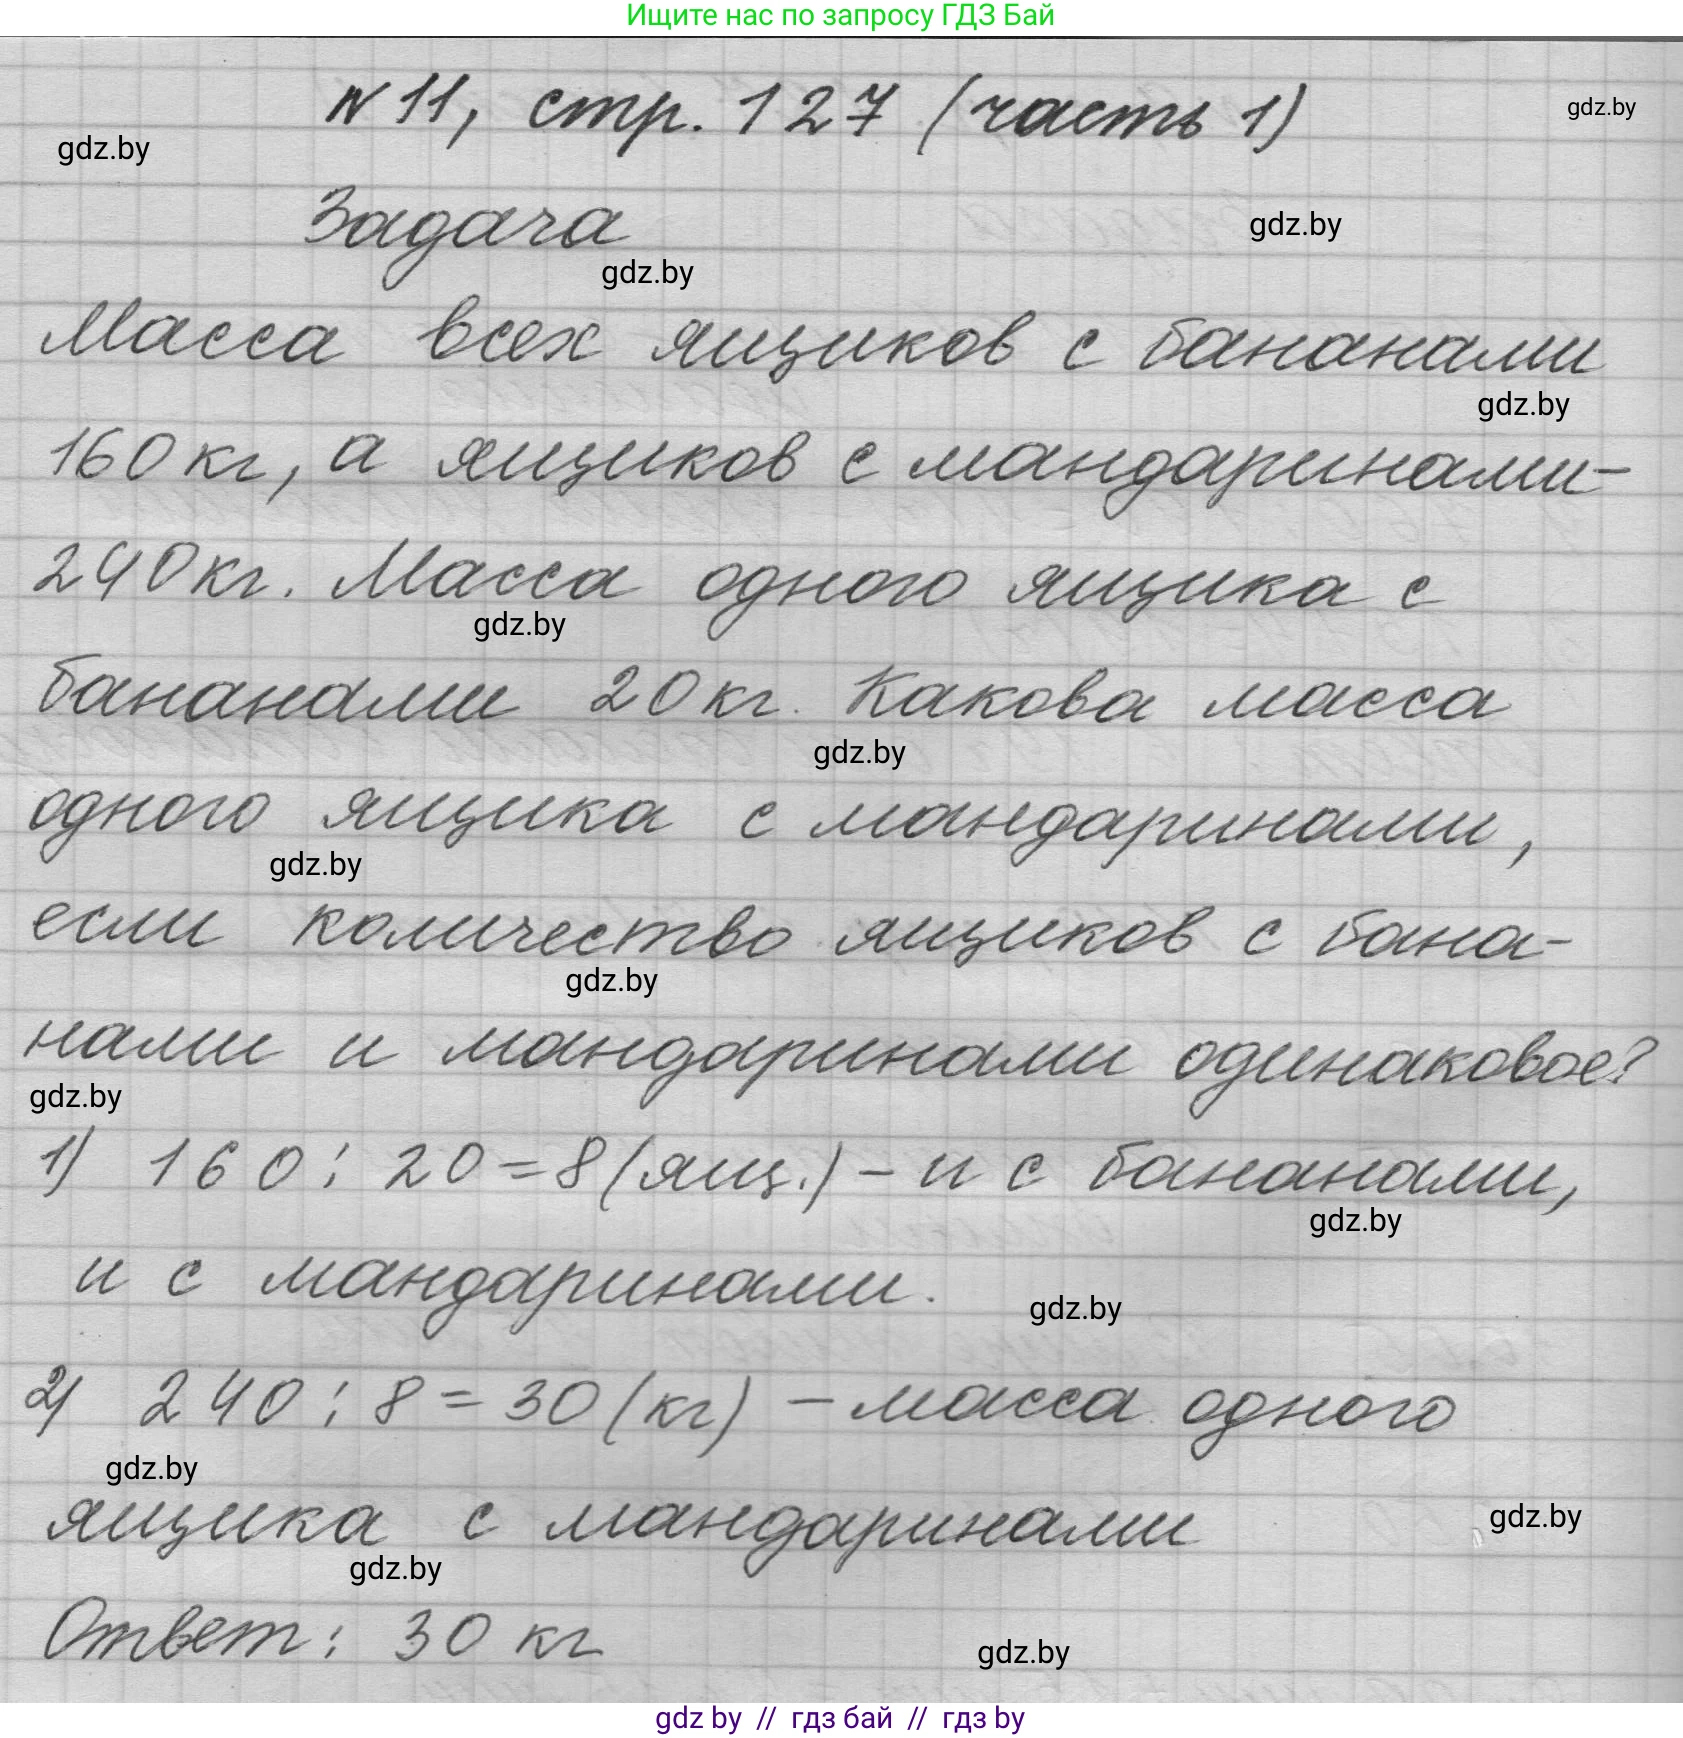 Ищите нас по запросу ГДЗ Бай
N 11, стр. 127 (часть 1)
gdz.by
gdz.by
Задача
gdz.by
gdz.by
Масса всех ящиков с бананами
gdz.by
160 кг, а ящиков с мандаринами-
240 кг. Масса одного ящика с
gdz.by
бананами 20 кг. Какова масса
gdz.by
одного ящика с мандаринами,
gdz.by
если количество ящиков с бана-
gdz.by
нами и мандаринами одинаковое?
gdz.by
1) 160 : 20 = 8 (ящ.) - и с бананами,
gdz.by
и с мандаринами.
gdz.by
2) 240 : 8 = 30 (кг) - масса одного
gdz.by
ящика с мандаринами
gdz.by
gdz.by
Ответ: 30 кг
gdz.by
gdz by // гдз бай // гдз by